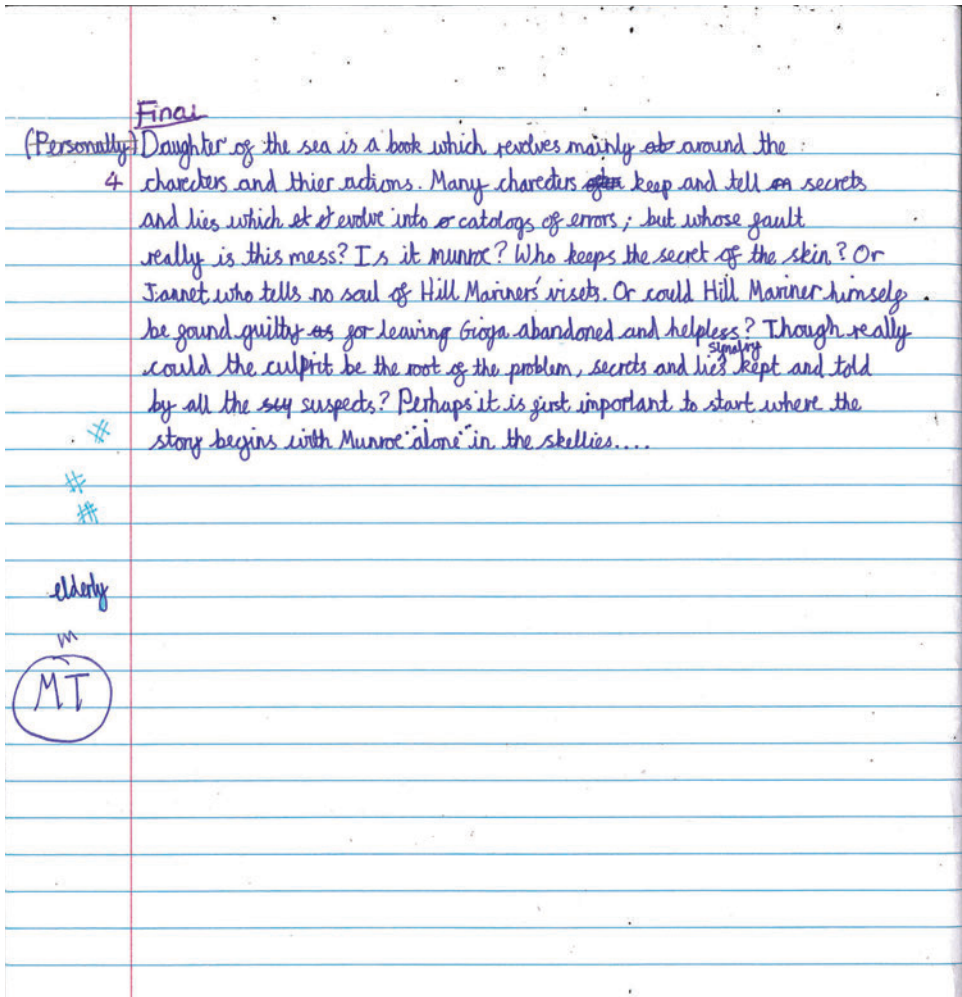 Final
(Personally) Daughter of the sea is a book which revolves mainly around the
4 charecters and thier actions. Many charecters keep and tell secrets
and lies which evolve into catologs of errors; but whose fault
really is this mess? Is it munroe? Who keeps the secret of the skin? Or
Jannet who tells no soul of Hill Mariners' visets. Or could Hill Mariner himself
be found guilty for leaving Gioga abandoned and helpless? Though really
could the culprit be the root of the problem, secrets and lies kept and told
by all the suspects? Perhaps it is first important to start where the
story begins with Munroe "alone" in the skellies....
#
#
#
elderly
m
MT